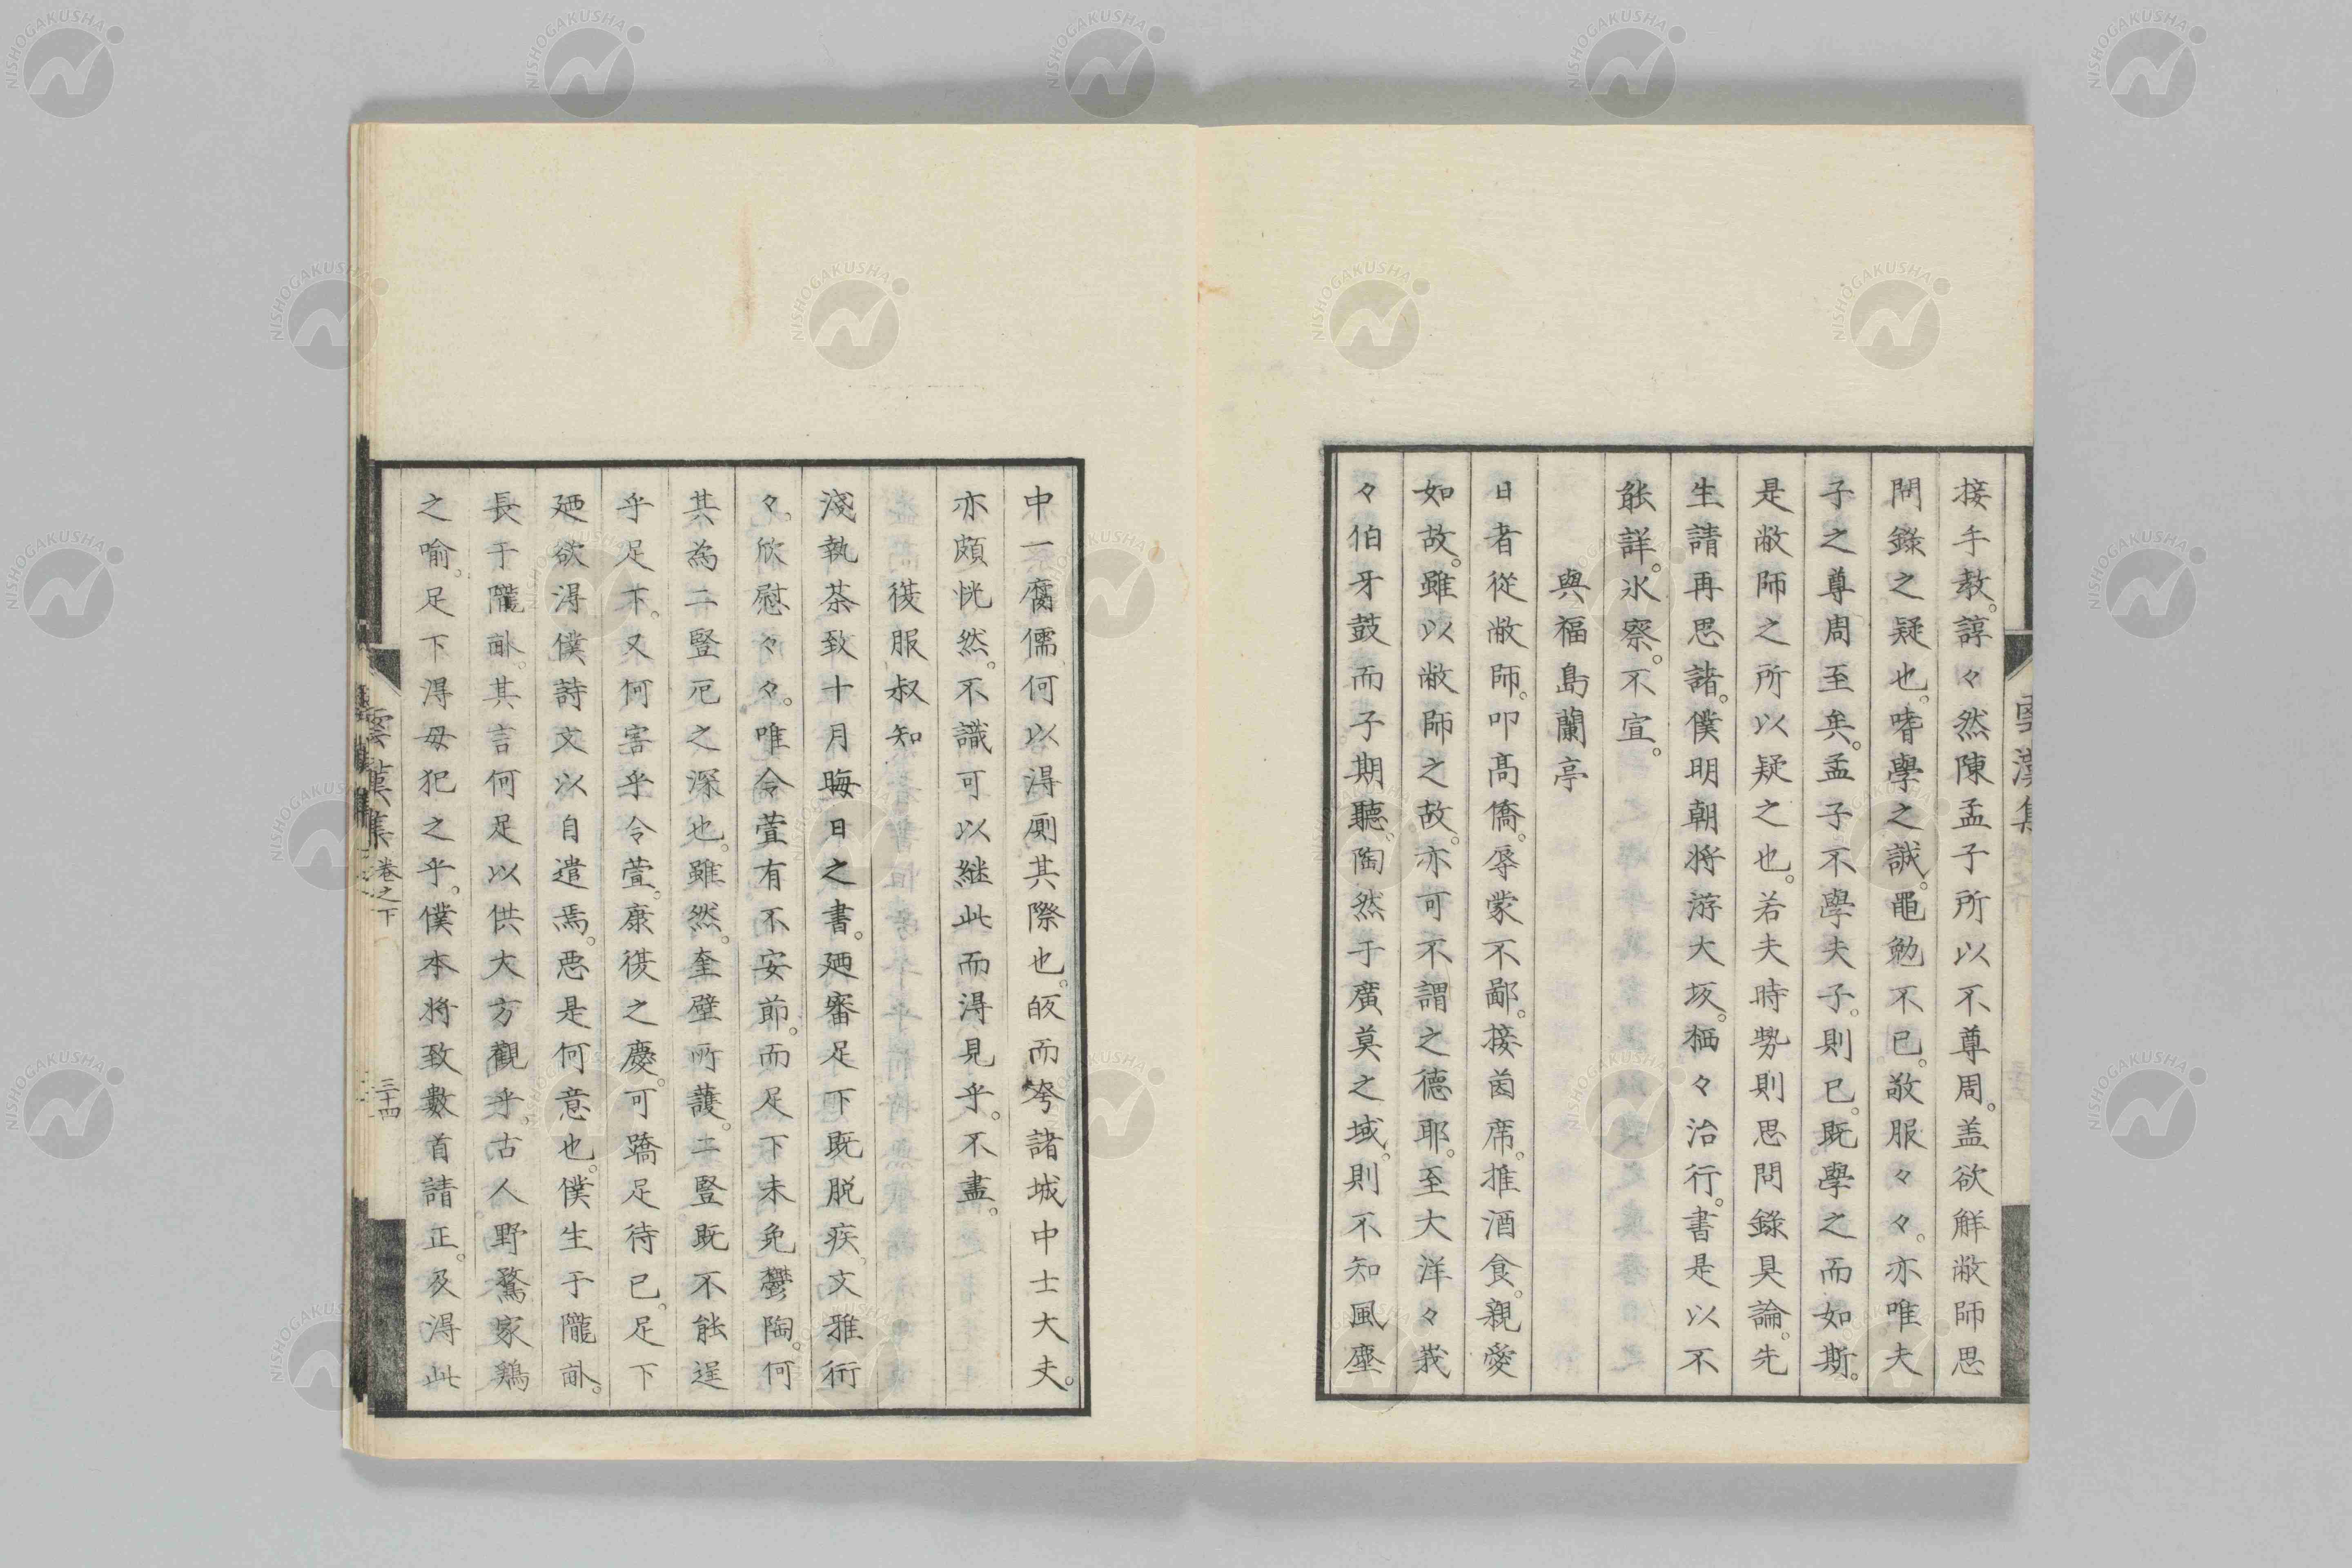 接手教。諄々然陳孟子所以不尊周。盖欲解敝師思
問錄之疑也。嗜學之誠。黽勉不已。敬服々々。亦唯夫
子之尊周至矣。孟子不學夫子。則已。既學之而如斯。
是敝師之所以疑之也。若夫時勢則思問錄具論。先
生請再思諸。僕明朝将游大坂。栖々治行。書是以不
能詳。氷察。不宣。
與福島蘭亭
日者從敝師。叩高僑。辱蒙不鄙。接茵席。推酒食。親愛
如故。雖以敝師之故。亦可不謂之德耶。至大洋々我
々伯牙鼓而子期聽。陶然于廣莫之域。則不知風塵
中一腐儒何以得厠其際也。皈而夸諸城中士大夫。
亦頗恍然。不識可以継此而得見乎。不盡。
復服叔知
淺執茶致十月晦日之書。廼審足下既脱疾。文雅衎
々。欣慰々々。唯令萱有不安節。而足下未免鬱陶。何
其為二豎厄之深也。雖然。奎壁所護。二豎既不能逞
乎足下。又何害乎令萱。康復之慶。可蹻足待已。足下
廼欲得僕詩文以自遣焉。惡是何意也。僕生于隴畝。
長于隴畝。其言何足以供大方觀乎。古人野鶩家鶏
之喻。足下得毋犯之乎。僕本将致數首請正。及得此
雲漢集 卷之下 三十四
NISHOGAKUSHA